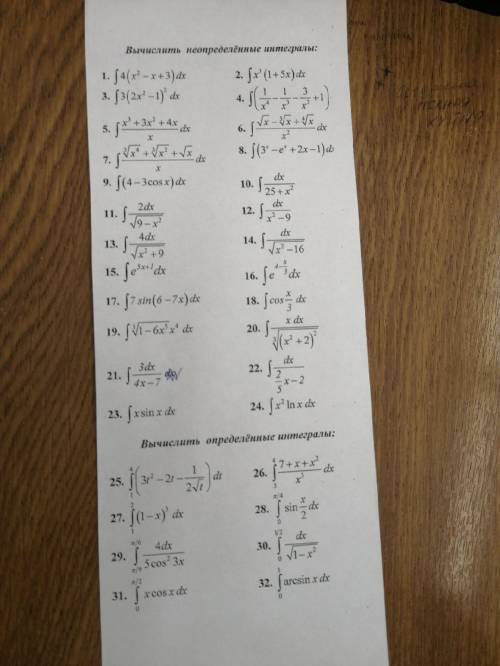 Вычислить неопределённые интегралы:
1. ∫4(x² − x + 3)dx 2. ∫x³(1 + 5x)dx
3. ∫3(2x² − 1)² dx 4. ∫(1/x⁴ − 1/x³ − 3/x² + 1)
5. ∫(x³ + 3x² + 4x)/x dx 6. ∫(√x − ∛x + ∜x)/x² dx
7. ∫(∛x⁴ + ∛x² + √x)/x dx 8. ∫(3ˣ − eˣ + 2x − 1)dx
9. ∫(4 − 3cos x)dx 10. ∫dx/(25 + x²)
11. ∫2dx/√(9 − x²) 12. ∫dx/(x² − 9)
13. ∫4dx/√(x² + 9) 14. ∫dx/√(x² − 16)
15. ∫e^(5x+1) dx 16. ∫e^(4−x/3) dx
17. ∫7 sin(6 − 7x)dx 18. ∫cos x/3 dx
19. ∫∛(1 − 6x⁵) x⁴ dx 20. ∫x dx/∛((x² + 2)²)
21. ∫3dx/(4x − 7) 22. ∫dx/(2/5 x − 2)
23. ∫x sin x dx 24. ∫x² ln x dx
Вычислить определённые интегралы:
25. ∫₁⁴(3t² − 2t − 1/(2√t))dt 26. ∫₃⁴(7 + x + x²)/x³ dx
27. ∫₁²(1 − x)³ dx 28. ∫₀^(π/4) sin x/2 dx
29. ∫_(π/9)^(π/6) 4dx/(5cos² 3x) 30. ∫₀^(1/2) dx/√(1 − x²)
31. ∫₀^(π/2) x cos x dx 32. ∫₀¹ arcsin x dx